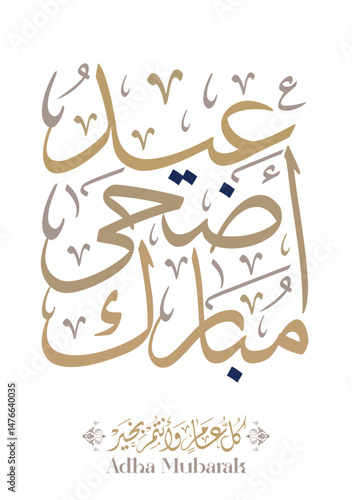 عيد
أضحى
مبارك
كل عام وأنتم بخير
Adha Mubarak
Adobe Stock | #1476640035